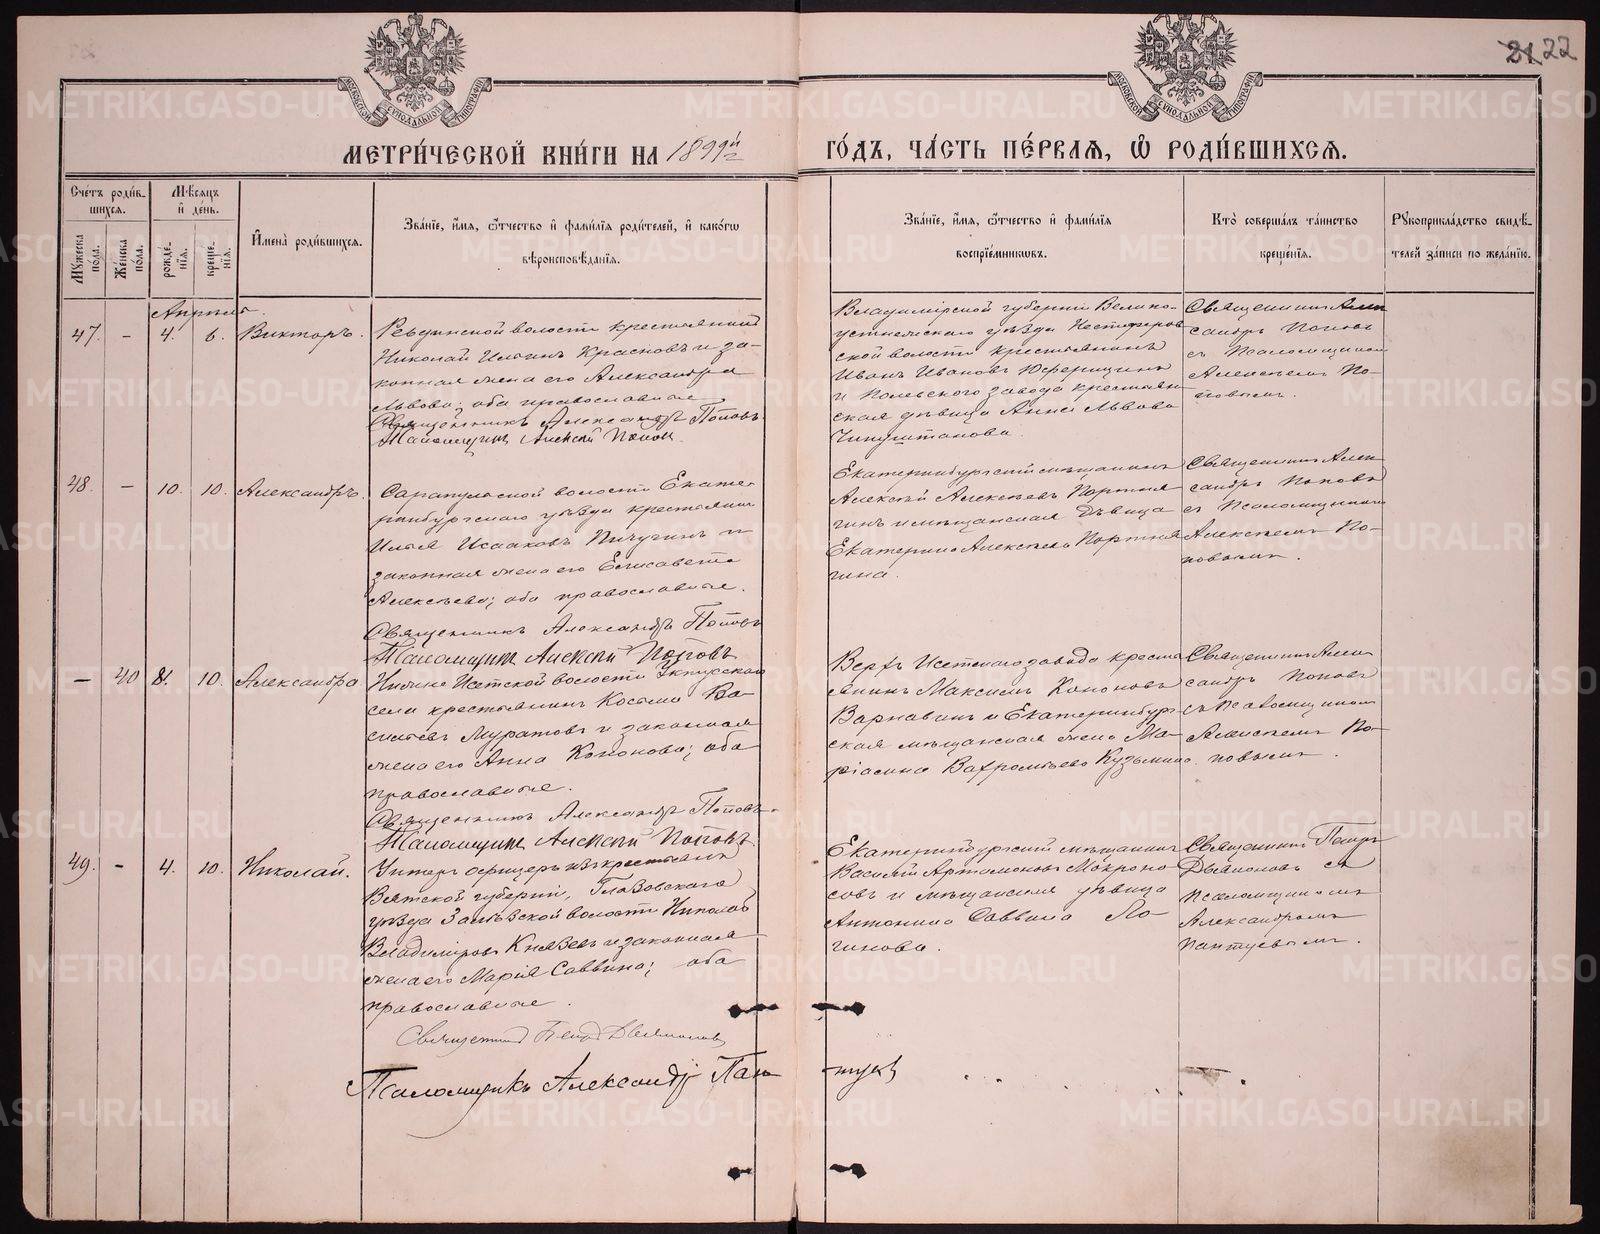 21 22
МЕТРИ́ЧЕСКОЙ КНИ́ГИ НА 1899й
ГО́ДЪ, ЧА́СТЬ ПЕ́РВАЯ, Ѡ РОДИ́ВШИХСЯ.
Сче́тъ роди́в-
шихся.
Му́жеска по́ла.
Же́нска по́ла.
Мѣ́сяцъ и҆ де́нь.
рожде́-
нїя.
креще́-
нїя.
И҆мена̀ роди́вшихся.
Зва́нїе, и҆́мя, ѻ҆́тчество и҆ фами́лїя роди́телей, и҆ како́гѡ
вѣроисповѣ́данїя.
Зва́нїе, и҆́мя, ѻ҆́тчество и҆ фами́лїя
воспрїе́мникѡвъ.
Кто̀ соверша́лъ та́инство
креще́нїя.
Рꙋкоприкла́дство свидѣ́-
телей за́писи по жела́нїю.
Апрѣль.
47. – 4. 6. Викторъ.
Ревдинской волости крестьянинъ
Николай Ильинъ Красновъ и за-
конная жена его Александра
Львова; оба православные
Священникъ Александръ Поповъ
Псаломщикъ Алексѣй Поповъ
Владимірской губерніи Велико-
ской волости крестьянинъ
Иванъ Ивановъ
и Полевского завода крестьян-
ская дѣвица Анна Львова
Священникъ Алек
сандръ Поповъ
съ Псаломщикомъ
Алексѣемъ По-
повымъ.
48. – 10. 10. Александръ.
Сарапульской волости Екате-
ринбургскаго уѣзда крестьянинъ
Илья Исааковъ Пичугинъ и
законная жена его Елисавета
Алексѣева; оба православные.
Священникъ Александръ Поповъ
Псаломщикъ Алексѣй Поповъ
Екатеринбургскій мѣщанинъ
Алексѣй Алексѣевъ Портня
гинъ и мѣщанская дѣвица
Екатерина Алексѣева Портня
гина.
Священникъ Алек
сандръ Поповъ
съ Псаломщикомъ
Алексѣемъ По-
повымъ.
– 40 8. 10. Александра.
Нижне Исетской волости Уктусскаго
села крестьянинъ Косьма Ва-
сильевъ Муратовъ и законная
жена его Анна Кононова; оба
православные.
Священникъ Александръ Поповъ
Псаломщикъ Алексѣй Поповъ
Верхъ Исетскаго завода кресть
янинъ Максимъ Кононовъ
Варнавинъ и Екатеринбург-
ская мѣщанская жена Ма-
ріамна Варѳоломѣева Кузьмина.
Священникъ Алек
сандръ Поповъ
съ Псаломщикомъ
Алексѣемъ По-
повымъ.
49. – 4. 10. Николай.
Унтеръ офицеръ изъ крестьянъ
Вятской губерніи, Глазовскаго
уѣзда волости Николай
Владиміровъ Князевъ и законная
жена его Марія Саввина; оба
православные.
Священникъ Петръ Дьяконовъ
Псаломщикъ Александръ Пан-
туевъ
Екатеринбургскій мѣщанинъ
Василій Артамоновъ Мокроно
совъ и мѣщанская дѣвица
Антонина Саввина Ло-
гинова.
Священникъ Петръ
Дьяконовъ съ
псаломщикомъ
Александромъ
Пантуевымъ.
METRIKI.GASO-URAL.RU